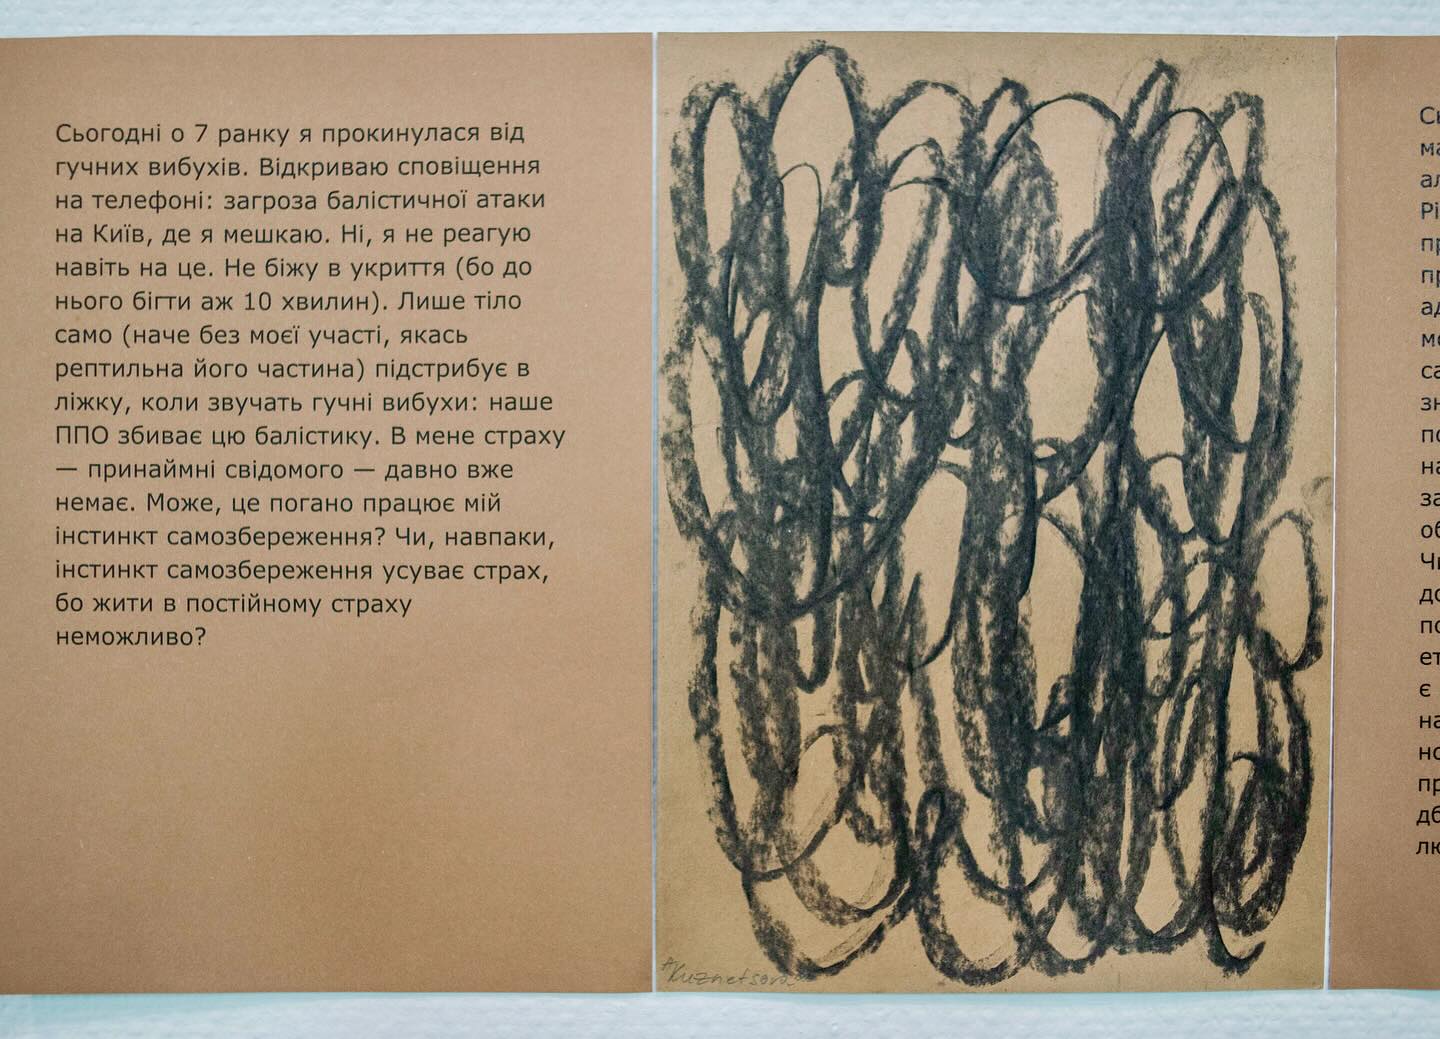 Сьогодні о 7 ранку я прокинулася від
гучних вибухів. Відкриваю сповіщення
на телефоні: загроза балістичної атаки
на Київ, де я мешкаю. Ні, я не реагую
навіть на це. Не біжу в укриття (бо до
нього бігти аж 10 хвилин). Лише тіло
само (наче без моєї участі, якась
рептильна його частина) підстрибує в
ліжку, коли звучать гучні вибухи: наше
ППО збиває цю балістику. В мене страху
— принаймні свідомого — давно вже
немає. Може, це погано працює мій
інстинкт самозбереження? Чи, навпаки,
інстинкт самозбереження усуває страх,
бо жити в постійному страху
неможливо?
AKuznetsova
є